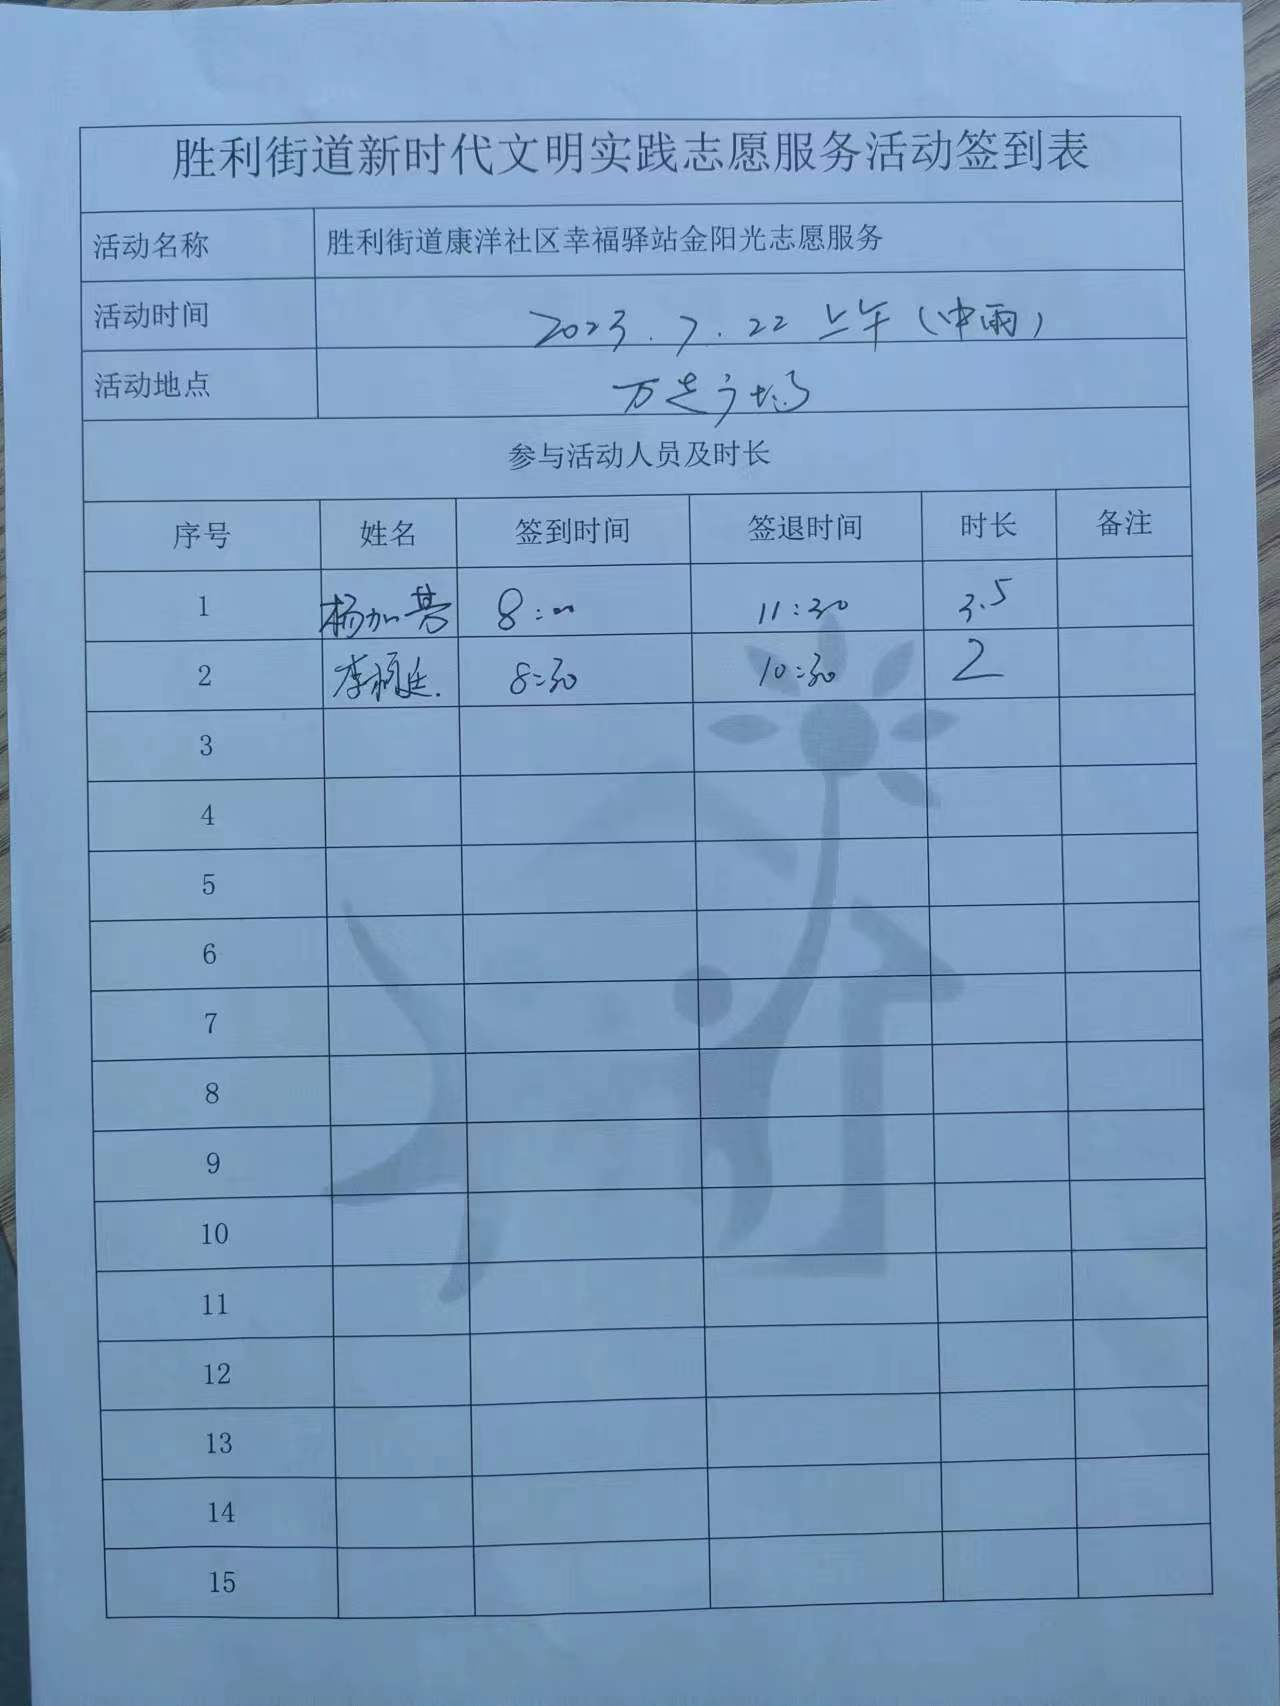 胜利街道新时代文明实践志愿服务活动签到表
活动名称 胜利街道康洋社区幸福驿站金阳光志愿服务
活动时间 2023.7.22 上午(中雨)
活动地点 万达广场
参与活动人员及时长
序号 姓名 签到时间 签退时间 时长 备注
1 杨加 8:00 11:30 3.5
2 李 8:30 10:30 2
3
4
5
6
7
8
9
10
11
12
13
14
15